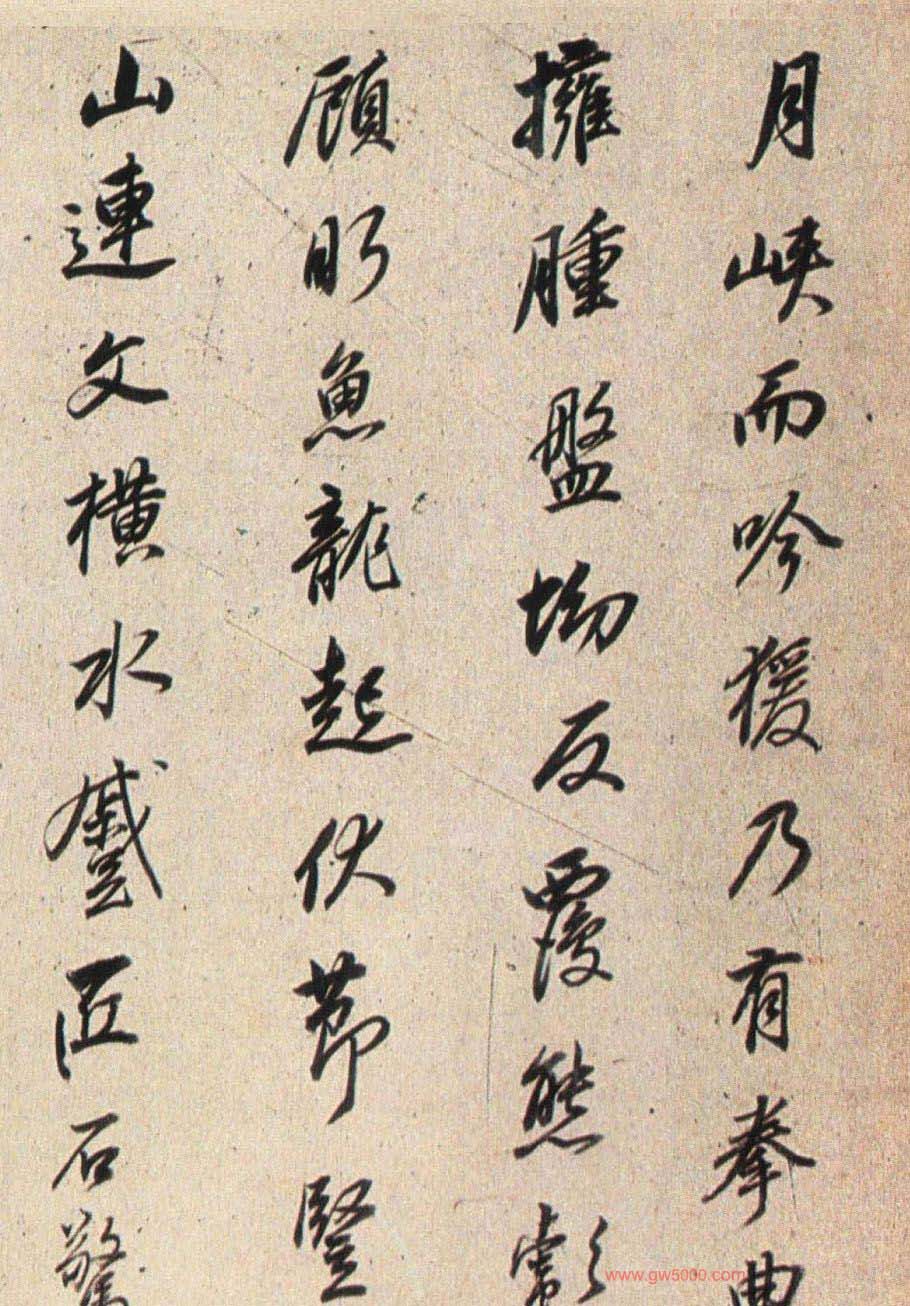 月峡而吟猨乃有拳曲
擁腫盤坳反覆熊彪
顧盼魚龍起伏節竪
山連文橫水蹙匠石驚
www.gw5000.com